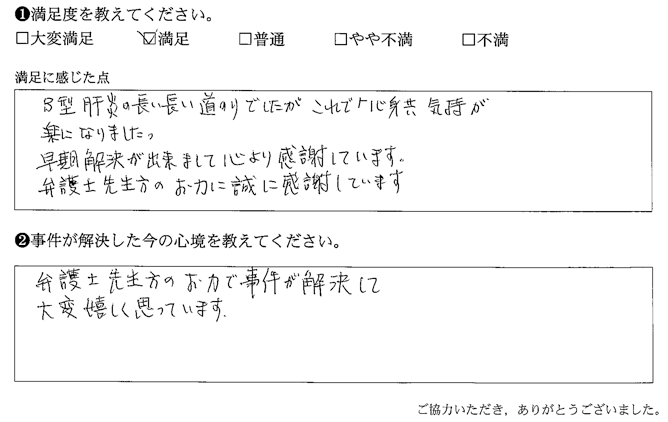 ❶満足度を教えてください。
□大変満足 ☑満足 □普通 □やや不満 □不満
満足に感じた点
B型肝炎の長い長い道のりでしたが これで心身共 気持が
楽になりました。
早期解決が出来まして心より感謝しています。
弁護士先生方のお力に誠に感謝しています
❷事件が解決した今の心境を教えてください。
弁護士先生方のお力で事件が解決して
大変嬉しく思っています.
ご協力いただき，ありがとうございました。